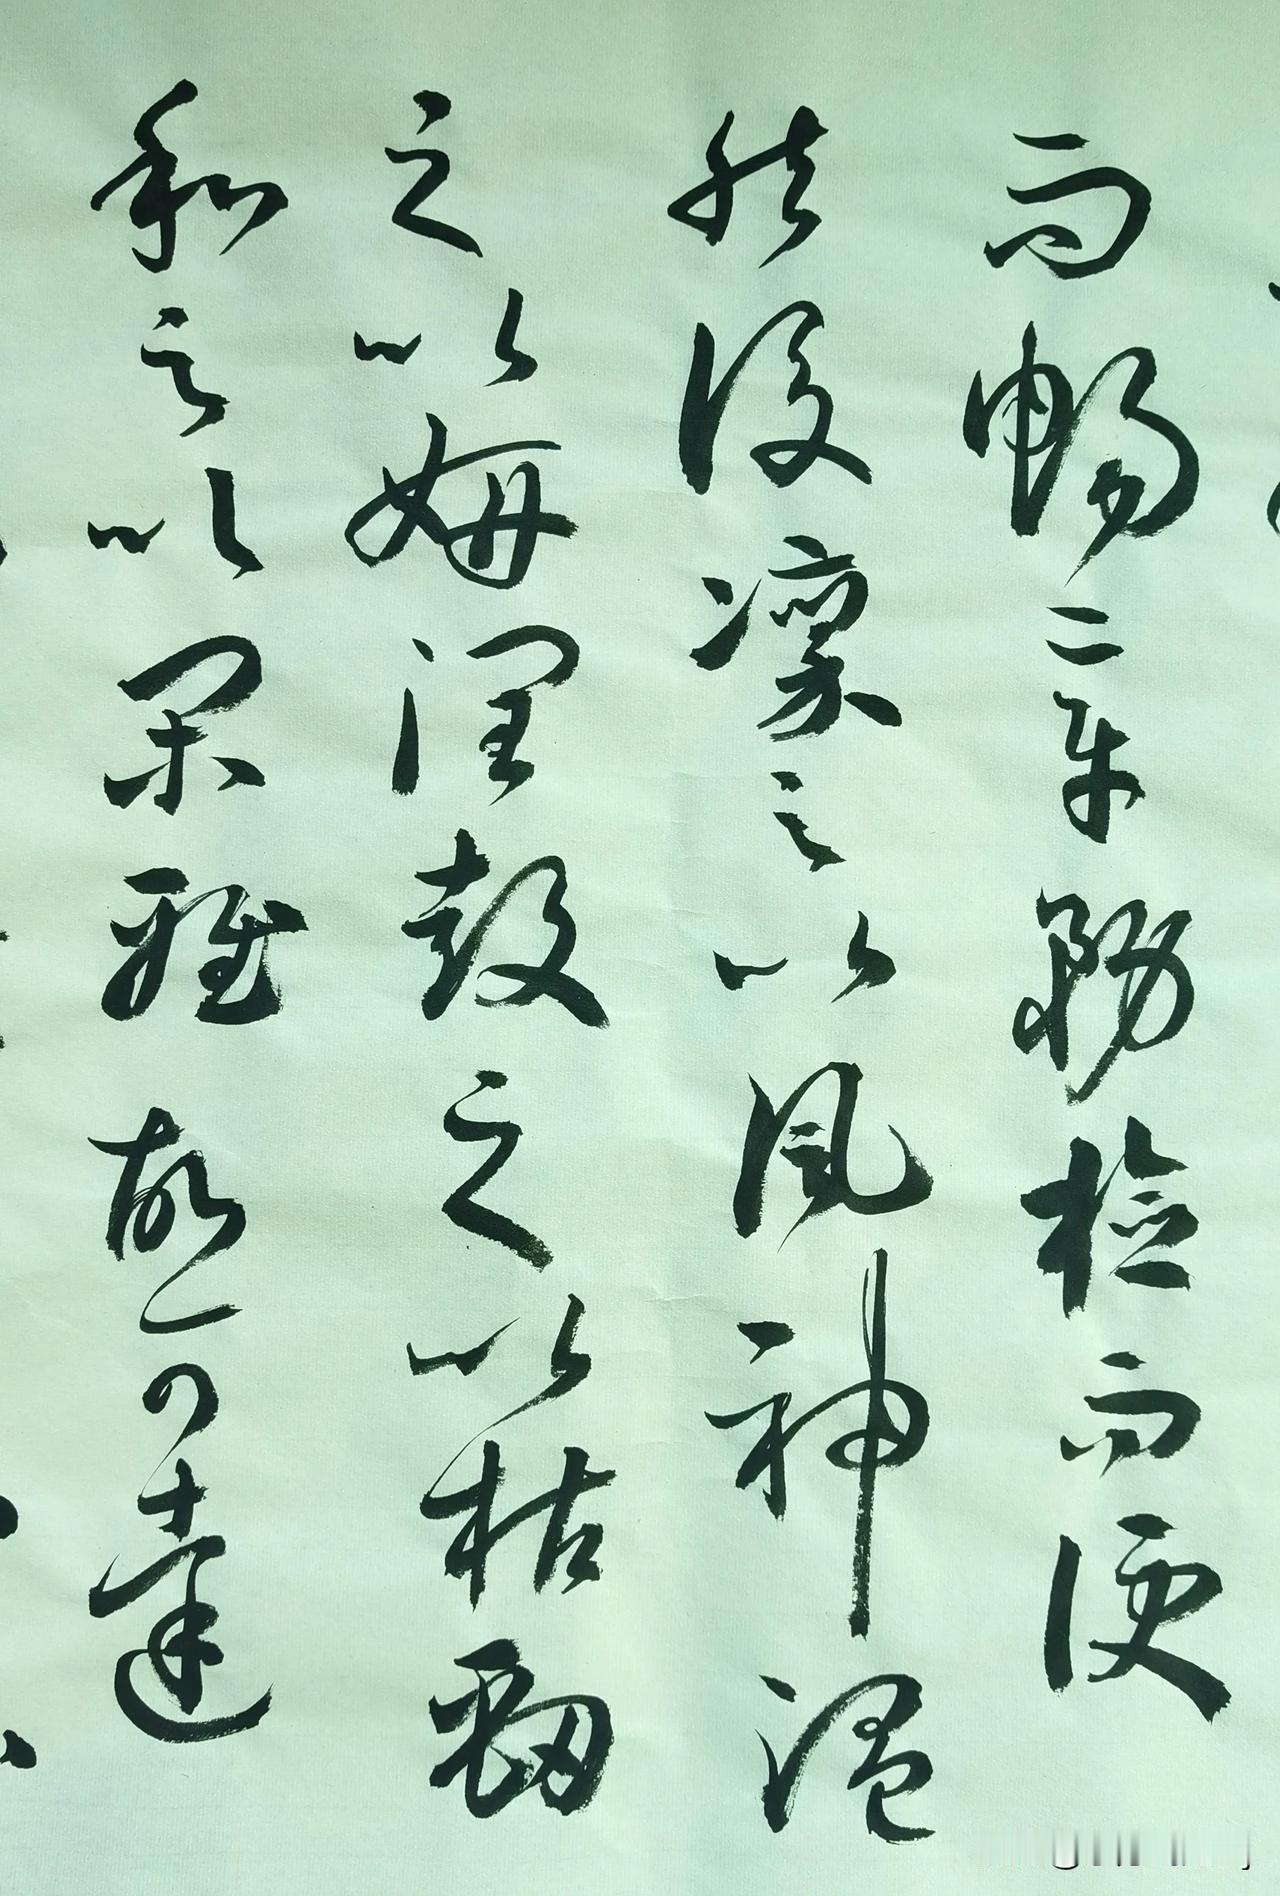 而暢章務檢而便
然後凛之以風神温
之以妍潤鼓之以枯勁
和之以閑雅故可達